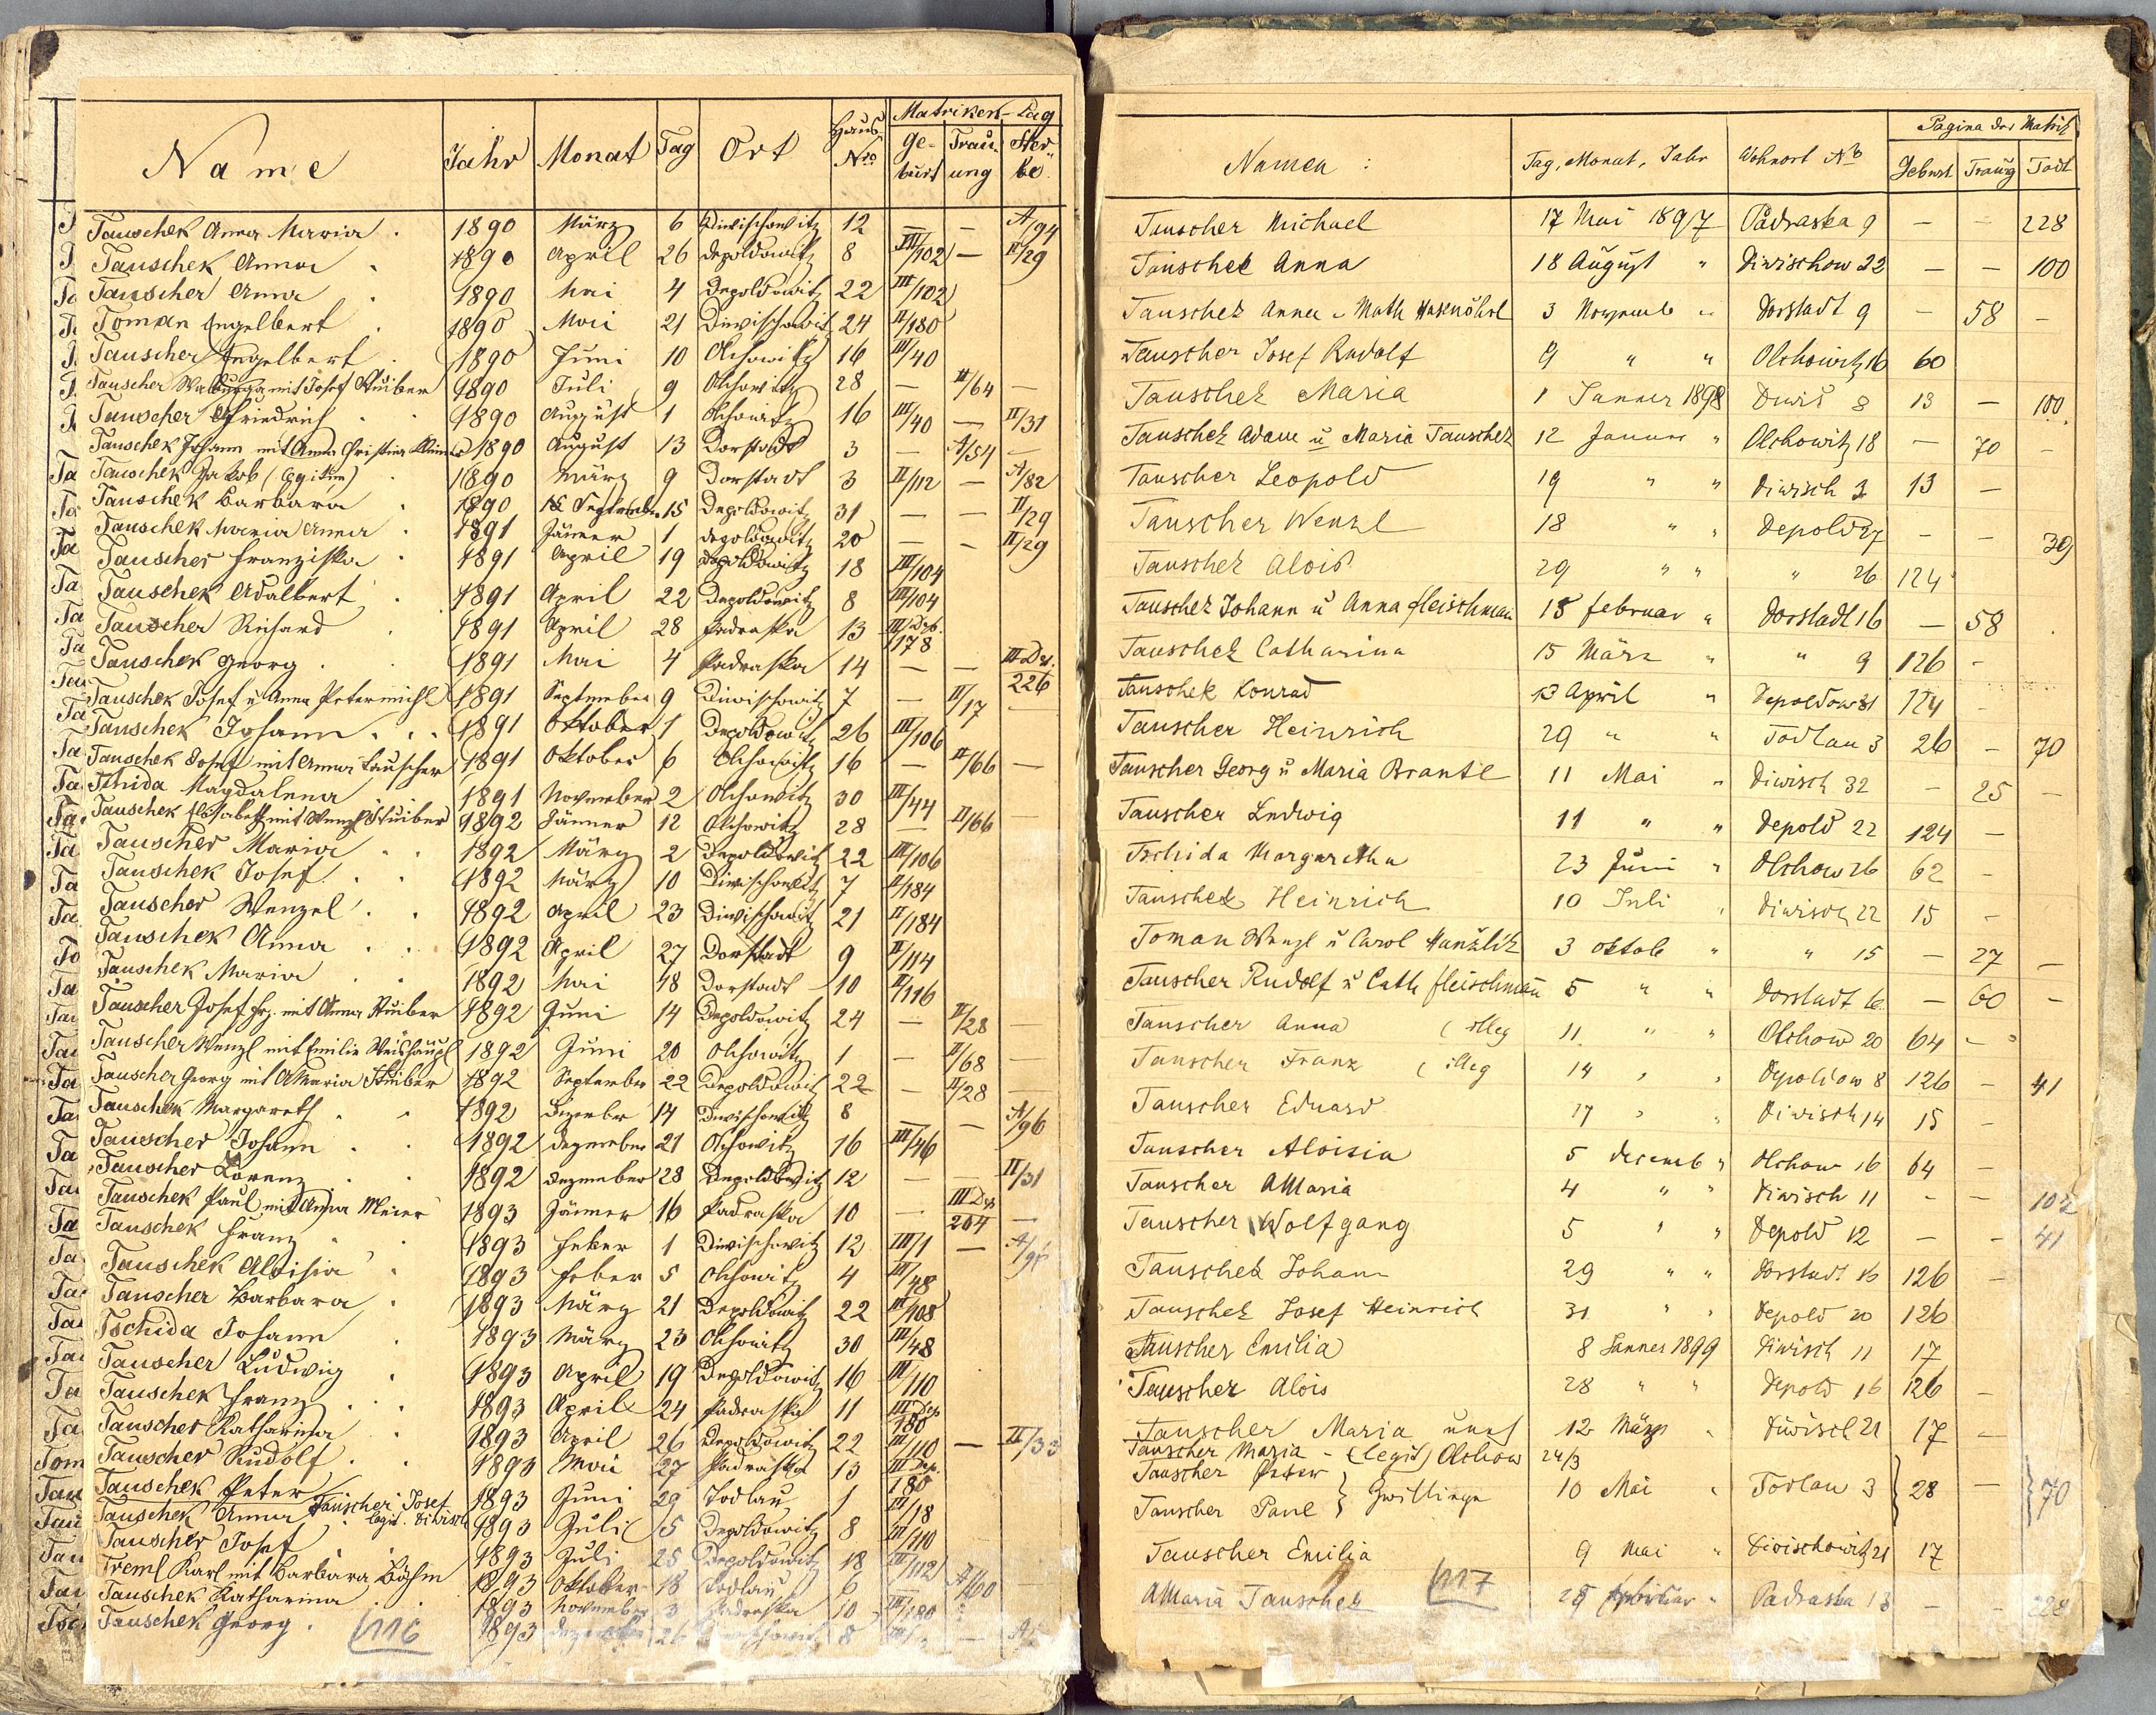 Matriken-Pag
Name Jahr Monat Tag Ort Haus Nro Geburt Trauung Sterbe
Tauschek Anna Maria . 1890 März 6 Diwischowitz 12 — — A/94
Tauschek Anna . 1890 April 26 Depoldowitz 8 III/102 — II/29
Tauscher Anna . 1890 Mai 4 Depoldowitz 22 III/102
Toman Engelbert . 1890 Mai 21 Diwischowitz 24 II/180
Tauscher Engelbert . 1890 Juni 10 Olchowitz 16 III/40
Tauscher Walburga mit Josef Stuiber 1890 Juli 9 Olchowitz 28 — II/64 —
Tauscher Friedrich . 1890 August 1 Olchowitz 16 III/40 — II/31
Tauschek Johann mit Anna Christina 1890 August 13 Dorstadt 3 — A/54 —
Tauschek Jakob (Egidius) . 1890 März 9 Dorstadt 3 II/112 — A/82
Tauschek Barbara . 1890 Septemb. 15 Depoldowitz 31 — — II/29
Tauschek Maria Anna . 1891 Jänner 1 Depoldowitz 20 — — II/29
Tauscher Franziska . 1891 April 19 Depoldowitz 18 III/104
Tauschek Adalbert . 1891 April 22 Depoldowitz 8 III/104
Tauscher Richard . 1891 April 28 Padraska 13 III Dep. 178
Tauschek Georg . 1891 Mai 4 Padraska 14 — — III Dep. 226
Tauschek Josef u Anna Petermichl 1891 September 9 Diwischowitz 7 — II/17 —
Tauschek Johann . . . 1891 Oktober 1 Depoldowitz 26 III/106
Tauschek Josef mit Anna Tauscher 1891 Oktober 6 Olchowitz 16 — II/66 —
Tschida Magdalena 1891 November 2 Olchowitz 30 III/44
Tauschek Elisabeth mit Wenzl Stuiber 1892 Jänner 12 Olchowitz 28 — II/66 —
Tauscher Maria . . 1892 März 2 Depoldowitz 22 III/106
Tauschek Josef . . 1892 März 10 Diwischowitz 7 II/184
Tauscher Wenzel . . 1892 April 23 Diwischowitz 21 II/184
Tauschek Anna . . 1892 April 27 Dorstadt 9 II/114
Tauschek Maria . . 1892 Mai 18 Dorstadt 10 II/116
Tauscher Josef Frz. mit Anna Stuiber 1892 Juni 14 Depoldowitz 24 — II/28 —
Tauscher Wenzl mit Emilie Weishäupl 1892 Juni 20 Olchowitz 1 — II/68 —
Tauscher Georg mit AMaria Stuiber 1892 September 22 Depoldowitz 22 — II/28 —
Tauschek Margareth . . 1892 Dezember 14 Diwischowitz 8 — A/96
Tauscher Johann . . 1892 Dezember 21 Olchowitz 16 III/46
Tauscher Lorenz . . 1892 Dezember 28 Depoldowitz 12 — — II/31
Tauschek Paul mit Anna Meier 1893 Jänner 16 Padraska 10 — III Dep 204 —
Tauschek Franz . . 1893 Feber 1 Diwischowitz 12 III/1 — A/96
Tauschek Aloisia . 1893 Feber 5 Olchowitz 4 III/48
Tauscher Barbara . 1893 März 21 Depoldowitz 22 III/108
Tschida Johann . 1893 März 23 Olchowitz 30 III/48
Tauscher Ludwig . 1893 April 19 Depoldowitz 16 III/110
Tauschek Franz . . . 1893 April 24 Padraska 11 III Dep 180
Tauscher Katharina . 1893 April 26 Depoldowitz 22 III/110 — II/33
Tauscher Rudolf . . 1893 Mai 27 Padraska 13 III Dep. 180
Tauschek Peter 1893 Juni 29 Todlau 1 III/18
Tauscher Josef legit. Diwisch
Tauschek Anna 1893 Juli 5 Depoldowitz 8 III/110
Tauscher Josef . . 1893 Juli 25 Depoldowitz 18 III/112
Treml Karl mit Barbara Böhm 1893 Oktober 18 Todlau 6 A/60
Tauschek Katharina . . 1893 November 3 Padraska 10 III/180
Tauschek Georg . 1893 Dezember 26 8
116
Pagina der Matrik
Namen : Tag, Monat, Jahr Wohnort No Geburt Trauung Todt
Tauscher Michael 17 Mai 1897 Padraska 9 — — 228
Tauschek Anna 18 August " Diwischow 22 — — 100
Tauschek Anna u Math Hasenöhrl 3 Novemb " Dorstadt 9 — 58 —
Tauscher Josef Rudolf 9 " " Olchowitz 16 60
Tauschek Maria 1 Janner 1898 Diwis 8 13 — 100
Tauschek Adam u Maria Tauschek 12 Januar " Olchowitz 18 — 70 —
Tauscher Leopold 19 " " Diwisch 3 13 —
Tauscher Wenzl 18 " " Depold 27 — — 39
Tauschek Alois 29 " " " 26 124
Tauschek Johann u Anna Fleischman 15 Februar " Dorstadt 16 — 58
Tauschek Catharina 15 März " " 9 126 -
Tauschek Konrad 13 April " Depoldow 31 124 -
Tauscher Heinrich 29 " " Todlau 3 26 — 70
Tauscher Georg u Maria Brantl 11 Mai " Diwisch 32 — 25 —
Tauscher Ludwig 11 " " Depold 22 124 —
Tschida Margaretha 23 Juni " Olchow 26 62 -
Tauschek Heinrich 10 Juli " Diwisch 22 15 -
Toman Wenzl u Carol Hanžlik 3 Oktob " " 15 — 27 —
Tauscher Rudolf u Cath Fleischman 5 " " Dorstadt 6 — 60 —
Tauscher Anna (illeg 11 " " Olchow 20 64 -
Tauscher Franz (illeg 14 " " Depoldow 8 126 — 41
Tauscher Eduard 17 " " Diwisch 14 15 -
Tauscher Aloisia 5 Decemb " Olchow 16 64 —
Tauscher AMaria 4 " " Diwisch 11 - — 102
Tauscher Wolfgang 5 " " Depold 12 — - 41
Tauschek Johann 29 " " Dorstadt 16 126 -
Tauschek Josef Heinrich 31 " " Depold 20 126
Tauscher Emilia 8 Janner 1899 Diwisch 11 17
Tauscher Alois 28 " " Depold 16 126 —
Tauscher Maria 12 März " Diwisch 21 17 —
Tauscher Maria - (legit) Olchow 24/3
Tauscher Peter } Zwillinge 10 Mai " Todlau 3 } 28 — } 70
Tauscher Paul
Tauscher Emilia 9 Mai " Diwischowitz 21 17
AMaria Tauschek 28 Februar " Padraska 13 — - 228
117